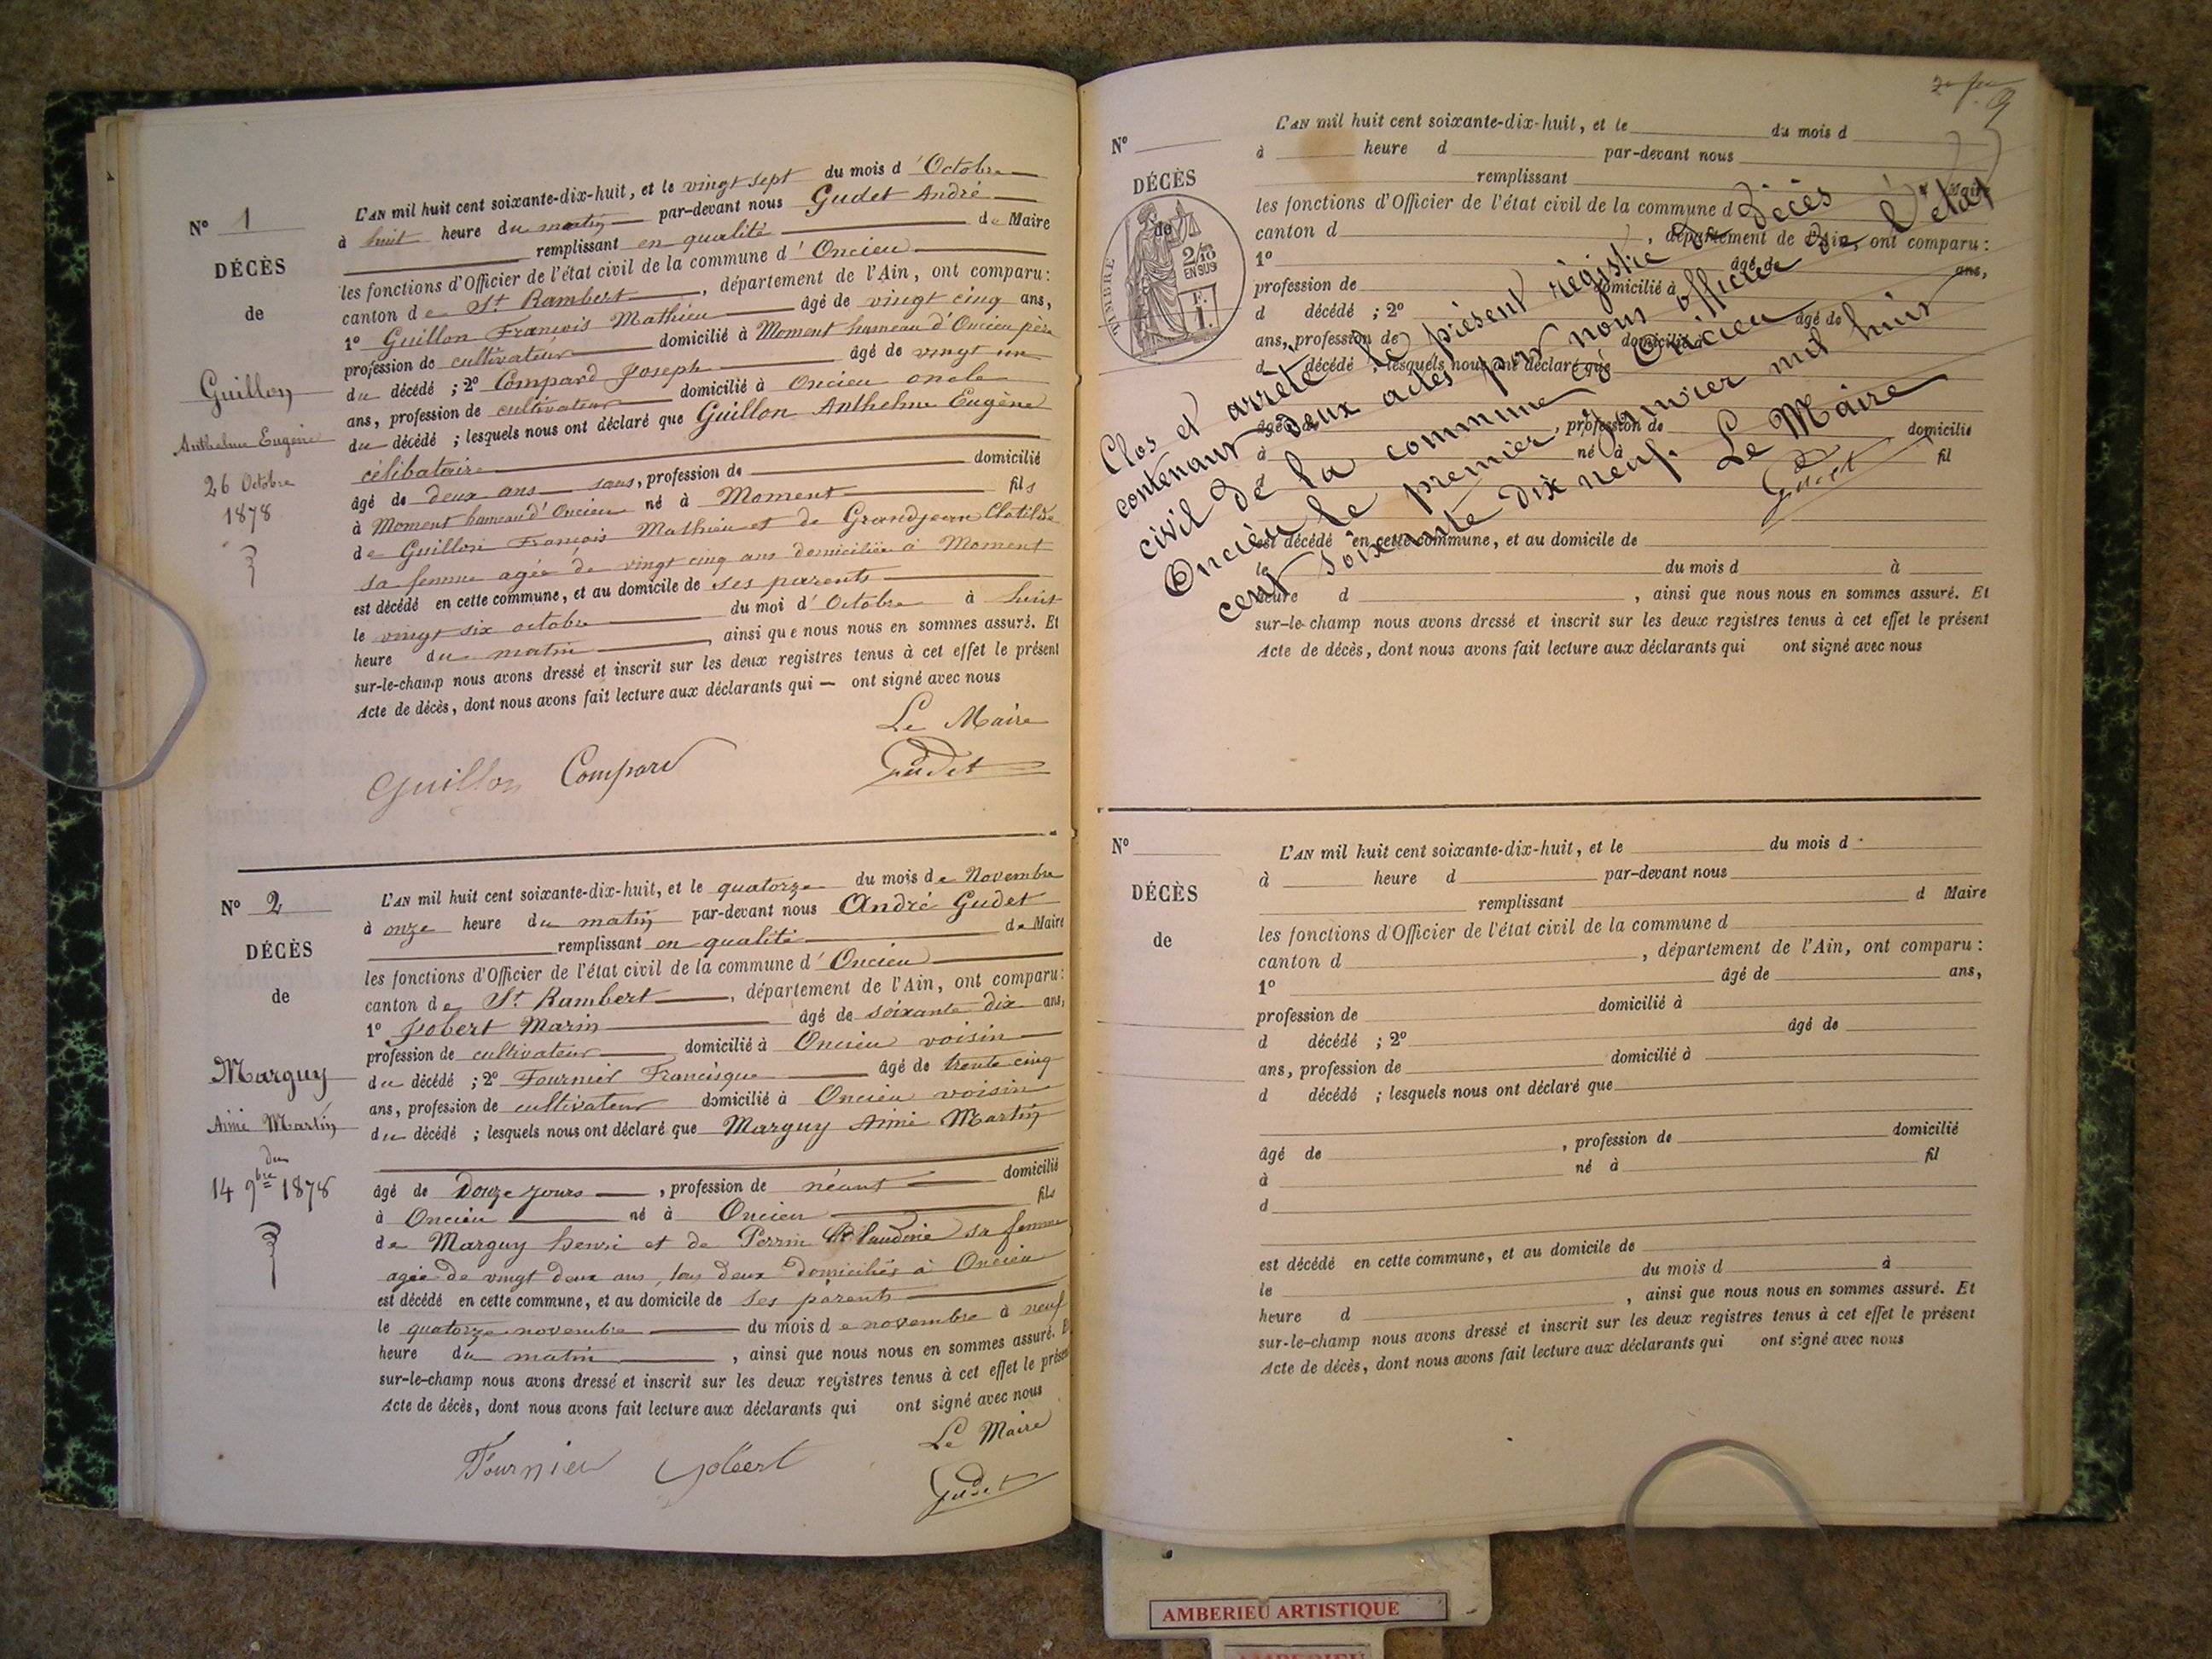 N° 1
DÉCÈS
de
Guillon
Anthelme Eugène
26 Octobre
1878
L'AN mil huit cent soixante-dix-huit, et le vingt sept du mois d'Octobre
à huit heure du matin par-devant nous Gudet André
remplissant en qualité de Maire
les fonctions d'Officier de l'état civil de la commune d'Oncieu
canton de St Rambert, département de l'Ain, ont comparu:
1° Guillon François Mathieu âgé de vingt cinq ans,
profession de cultivateur domicilié à Moment hameau d'Oncieu père
du décédé ; 2° Compard Joseph âgé de vingt un
ans, profession de cultivateur domicilié à Oncieu oncle
du décédé ; lesquels nous ont déclaré que Guillon Anthelme Eugène
célibataire
âgé de deux ans sans, profession de domicilié
à Moment hameau d'Oncieu né à Moment fils
de Guillon François Mathieu et de Grandjean Clotilde
sa femme agée de vingt cinq ans domiciliée à Moment
est décédé en cette commune, et au domicile de ses parents
le vingt six octobre du moi d'Octobre à huit
heure du matin, ainsi que nous nous en sommes assuré. Et
sur-le-champ nous avons dressé et inscrit sur les deux registres tenus à cet effet le présent
Acte de décès, dont nous avons fait lecture aux déclarants qui — ont signé avec nous
Le Maire
Guillon Compard Gudet
N° 2
DÉCÈS
de
Marguy
Aimé Martin
du
14 9bre 1878
L'AN mil huit cent soixante-dix-huit, et le quatorze du mois de Novembre
à onze heure du matin par-devant nous André Gudet
remplissant en qualité de Maire
les fonctions d'Officier de l'état civil de la commune d'Oncieu
canton de St Rambert, département de l'Ain, ont comparu:
1° Jobert Marin âgé de soixante dix ans,
profession de cultivateur domicilié à Oncieu voisin
du décédé ; 2° Fournier Francisque âgé de trente cinq
ans, profession de cultivateur domicilié à Oncieu voisin
du décédé ; lesquels nous ont déclaré que Marguy Aimé Martin
âgé de douze jours, profession de néant domicilié
à Oncieu né à Oncieu fils
de Marguy henri et de Perrin Claudine sa femme
agée de vingt deux ans, tous deux domiciliés à Oncieu
est décédé en cette commune, et au domicile de ses parents
le quatorze novembre du mois de novembre à neuf
heure du matin, ainsi que nous nous en sommes assuré. E
sur-le-champ nous avons dressé et inscrit sur les deux registres tenus à cet effet le présen
Acte de décès, dont nous avons fait lecture aux déclarants qui ont signé avec nous
Le Maire
Fournier Jobert Gudet
N°
DÉCÈS
de
TIMBRE
2/10
EN SUS
F.
1.
L'AN mil huit cent soixante-dix-huit, et le du mois d
à heure d par-devant nous
remplissant Maire
les fonctions d'Officier de l'état civil de la commune d
canton d , département de l'Ain, ont comparu:
1° âgé de ans,
profession de domicilié à
d décédé ; 2° âgé de
ans, profession de domicilié à
d décédé ; lesquels nous ont déclaré que
âgé de , profession de domicilié
à né à fil
d
est décédé en cette commune, et au domicile de
le du mois d à
heure d , ainsi que nous nous en sommes assuré. Et
sur-le-champ nous avons dressé et inscrit sur les deux registres tenus à cet effet le présent
Acte de décès, dont nous avons fait lecture aux déclarants qui ont signé avec nous
Clos et arrêté le présent régistre de décès
contenant deux actes par nous officier de l'état
civil de la commune d'Oncieu
Oncieu le premier janvier mil huit
cent soixante dix neuf. Le Maire
Gudet
N°
DÉCÈS
de
L'AN mil huit cent soixante-dix-huit, et le du mois d
à heure d par-devant nous
remplissant d Maire
les fonctions d'Officier de l'état civil de la commune d
canton d , département de l'Ain, ont comparu:
1° âgé de ans,
profession de domicilié à
d décédé ; 2° âgé de
ans, profession de domicilié à
d décédé ; lesquels nous ont déclaré que
âgé de , profession de domicilié
à né à fil
d
est décédé en cette commune, et au domicile de
le du mois d à
heure d , ainsi que nous nous en sommes assuré. Et
sur-le-champ nous avons dressé et inscrit sur les deux registres tenus à cet effet le présent
Acte de décès, dont nous avons fait lecture aux déclarants qui ont signé avec nous
AMBERIEU ARTISTIQUE
AMBERIEU